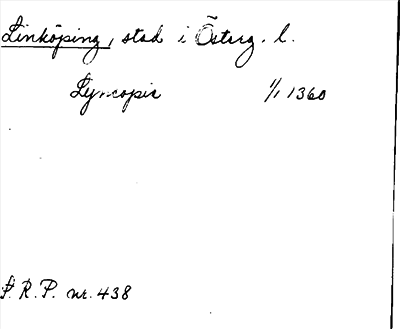 Linköping, stad i Österg. l.
Lyncopie 1/1 1360
S. R. P. nr. 438